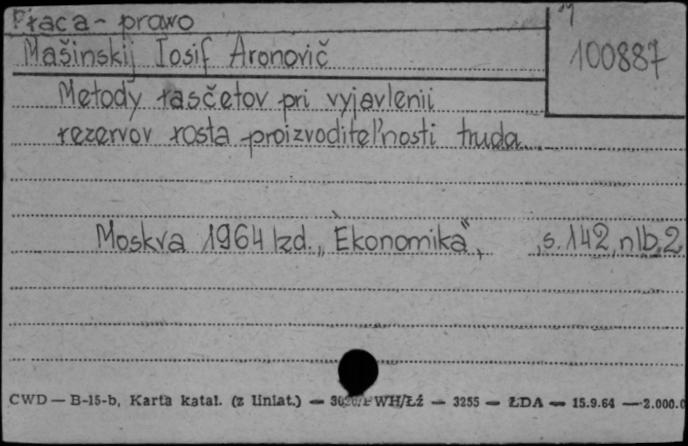 Praca - prawo
M
100887
Mašinskij Iosif Aronovič
Metody rasčetov pri vyjavlenii
rezervov rosta proizvoditel'nosti truda
Moskva 1964 Izd. „Èkonomika", , s. 142, nlb, 2
CWD — B-15-b, Karta katal. (z liniat.) — WH/Łź — 3255 — ŁDA — 15.9.64 — 2.000.0